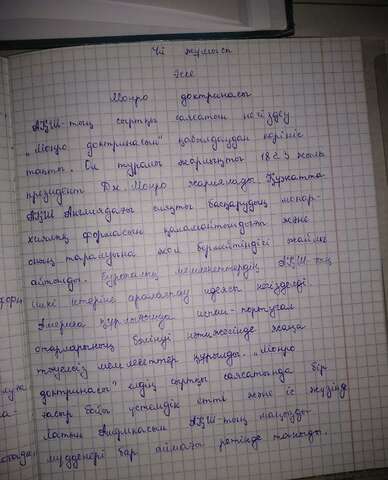 Үй жұмысы
Эссе
Монро доктринасы
АҚШ-тың сыртқы саясатын негіздеу
"Монро доктринасын" қабылдаудан көрініс
тапты. Ол туралы жарлықты 1823 жылы
президент Дж. Монро жариялады. Құжатта
АҚШ Англиядағы сияқты басқарудың монар-
хиялық формасын қаламайтындығы және
оның таралуына жол бермейтіндігі жайлы
айтылды. Еуропалық мемлекеттердің АҚШ-тың
ішкі істеріне араласпау идеясы негізделді
Америка құрлығында испан-португал
отарларының бөлінуі нәтижесінде жаңа
тәуелсіз мемлекеттер құрылды. "Монро
доктринасы" елдің сыртқы саясатында бір
ғасыр бойы үстемдік етті және іс жүзінде
Латын Америкасын АҚШ-тың маңызды
мүдделері бар аймағы ретінде таныды.